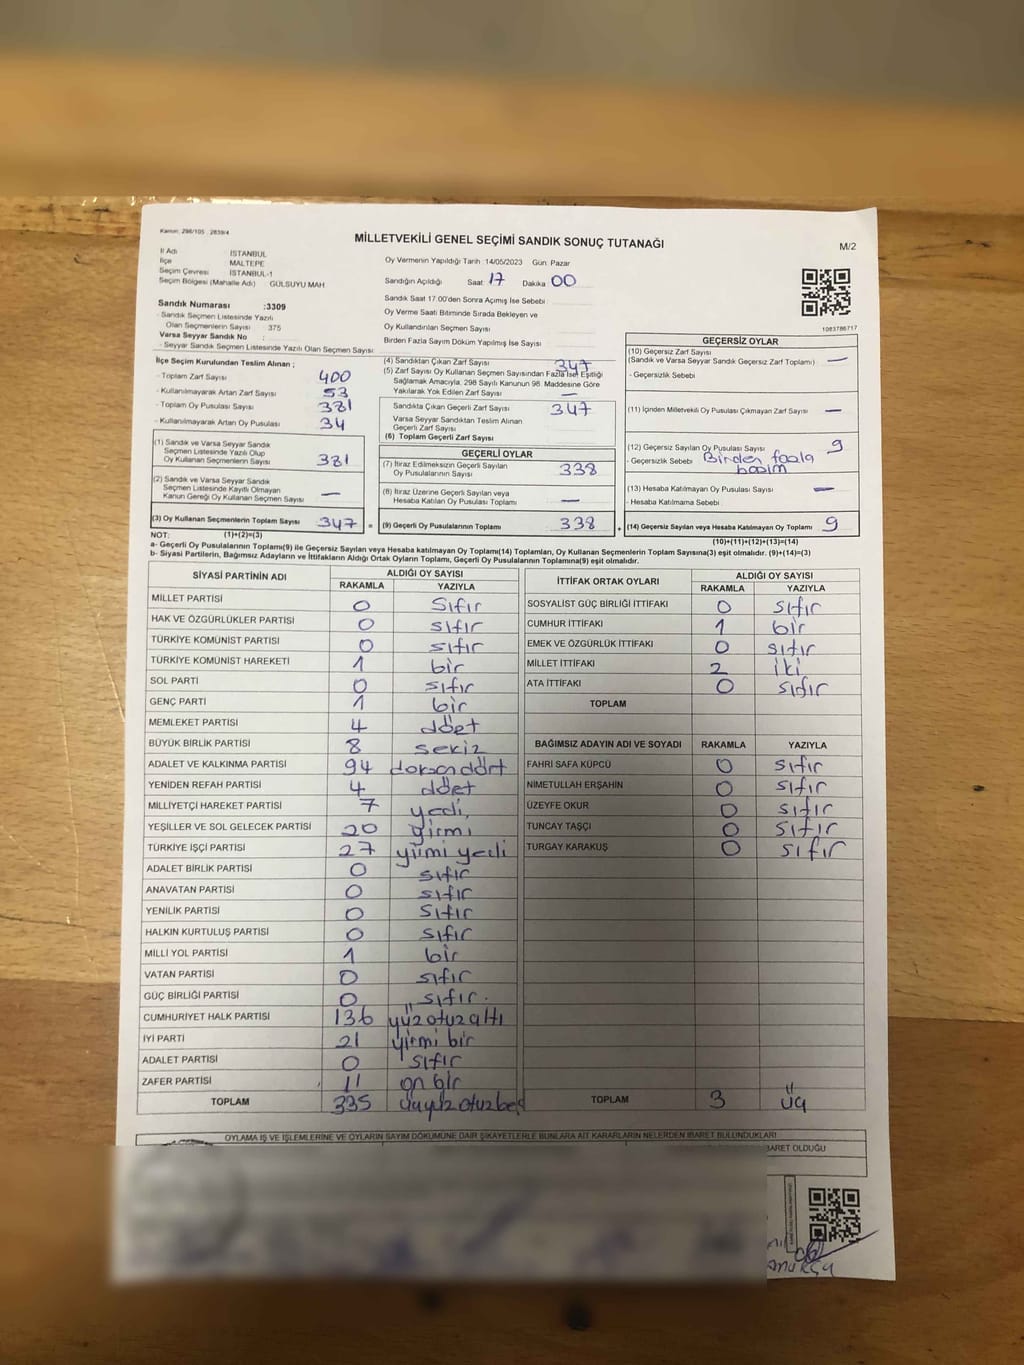 Kanun, 298/105 . 2839/4
MİLLETVEKİLİ GENEL SEÇİMİ SANDIK SONUÇ TUTANAĞI
M/2
İl Adı İSTANBUL
İlçe MALTEPE
Seçim Çevresi İSTANBUL-1
Seçim Bölgesi (Mahalle Adı) GÜLSUYU MAH
Oy Vermenin Yapıldığı Tarih :14/05/2023 Gün: Pazar
Sandığın Açıldığı Saat: 17 Dakika 00
Sandık Saat 17.00'den Sonra Açımış İse Sebebi
Oy Verme Saati Bitiminde Sırada Bekleyen ve
Oy Kullandırılan Seçmen Sayısı
Birden Fazla Sayım Döküm Yapılmış İse Sayısı
1083786717
Sandık Numarası :3309
- Sandık Seçmen Listesinde Yazılı
Olan Seçmenlerin Sayısı 375
Varsa Seyyar Sandık No :
- Seyyar Sandık Seçmen Listesinde Yazılı Olan Seçmen Sayısı:
İlçe Seçim Kurulundan Teslim Alınan ;
- Toplam Zarf Sayısı 400
- Kullanılmayarak Artan Zarf Sayısı 53
- Toplam Oy Pusulası Sayısı 381
- Kullanılmayarak Artan Oy Pusulası 34
(1) Sandık ve Varsa Seyyar Sandık
Seçmen Listesinde Yazılı Olup
Oy Kullanan Seçmenlerin Sayısı 381
(2) Sandık ve Varsa Seyyar Sandık
Seçmen Listesinde Kayıtlı Olmayan
Kanun Gereği Oy Kullanan Seçmen Sayısı —
(3) Oy Kullanan Seçmenlerin Toplam Sayısı 347 =
(1)+(2)=(3)
(4) Sandıktan Çıkan Zarf Sayısı 347
(5) Zarf Sayısı Oy Kullanan Seçmen Sayısından Fazla İse Eşitliği
Sağlamak Amacıyla, 298 Sayılı Kanunun 98. Maddesine Göre
Yakılarak Yok Edilen Zarf Sayısı —
Sandıkta Çıkan Geçerli Zarf Sayısı 347
Varsa Seyyar Sandıktan Teslim Alınan
Geçerli Zarf Sayısı
(6) Toplam Geçerli Zarf Sayısı
GEÇERLİ OYLAR
(7) İtiraz Edilmeksizin Geçerli Sayılan
Oy Pusulalarının Sayısı 338
(8) İtiraz Üzerine Geçerli Sayılan veya
Hesaba Katılan Oy Pusulası Toplamı —
(9) Geçerli Oy Pusulalarının Toplamı 338 +
GEÇERSİZ OYLAR
(10) Geçersiz Zarf Sayısı
(Sandık ve Varsa Seyyar Sandık Geçersiz Zarf Toplamı) —
- Geçersizlik Sebebi
(11) İçinden Milletvekili Oy Pusulası Çıkmayan Zarf Sayısı —
(12) Geçersiz Sayılan Oy Pusulası Sayısı 9
- Geçersizlik Sebebi Birden fazla
basım
(13) Hesaba Katılmayan Oy Pusulası Sayısı —
Hesaba Katılmama Sebebi
(14) Geçersiz Sayılan veya Hesaba Katılmayan Oy Toplamı 9
(10)+(11)+(12)+(13)=(14)
NOT:
a- Geçerli Oy Pusulalarının Toplamı(9) ile Geçersiz Sayılan veya Hesaba katılmayan Oy Toplamı(14) Toplamları, Oy Kullanan Seçmenlerin Toplam Sayısına(3) eşit olmalıdır. (9)+(14)=(3)
b- Siyasi Partilerin, Bağımsız Adayların ve İttifakların Aldığı Ortak Oyların Toplamı, Geçerli Oy Pusulalarının Toplamına(9) eşit olmalıdır.
SİYASİ PARTİNİN ADI ALDIĞI OY SAYISI
RAKAMLA YAZIYLA
MİLLET PARTİSİ 0 Sıfır
HAK VE ÖZGÜRLÜKLER PARTİSİ 0 sıfır
TÜRKİYE KOMÜNİST PARTİSİ 0 sıfır
TÜRKİYE KOMÜNİST HAREKETİ 1 bir
SOL PARTİ 0 sıfır
GENÇ PARTİ 1 bir
MEMLEKET PARTİSİ 4
BÜYÜK BİRLİK PARTİSİ 8 sekiz
ADALET VE KALKINMA PARTİSİ 94 doksandört
YENİDEN REFAH PARTİSİ 4
MİLLİYETÇİ HAREKET PARTİSİ 7 yedi
YEŞİLLER VE SOL GELECEK PARTİSİ 20 yirmi
TÜRKİYE İŞÇİ PARTİSİ 27 yirmi yedi
ADALET BİRLİK PARTİSİ 0 sıfır
ANAVATAN PARTİSİ 0 sıfır
YENİLİK PARTİSİ 0 sıfır
HALKIN KURTULUŞ PARTİSİ 0 sıfır
MİLLİ YOL PARTİSİ 1 bir
VATAN PARTİSİ 0 sıfır
GÜÇ BİRLİĞİ PARTİSİ 0 sıfır.
CUMHURİYET HALK PARTİSİ 136 yüzotuzaltı
İYİ PARTİ 21 yirmi bir
ADALET PARTİSİ 0 sıfır
ZAFER PARTİSİ 11 on bir
TOPLAM 335 üçyüzotuzbeş
İTTİFAK ORTAK OYLARI ALDIĞI OY SAYISI
RAKAMLA YAZIYLA
SOSYALİST GÜÇ BİRLİĞİ İTTİFAKI 0 sıfır
CUMHUR İTTİFAKI 1 bir
EMEK VE ÖZGÜRLÜK İTTİFAKI 0 sıfır
MİLLET İTTİFAKI 2 iki
ATA İTTİFAKI 0 sıfır
TOPLAM
BAĞIMSIZ ADAYIN ADI VE SOYADI RAKAMLA YAZIYLA
FAHRİ SAFA KÜPCÜ 0 sıfır
NİMETULLAH ERŞAHİN 0 sıfır
ÜZEYFE OKUR 0 sıfır
TUNCAY TAŞÇI 0 sıfır
TURGAY KARAKUŞ 0 sıfır
TOPLAM 3 üç
OYLAMA İŞ VE İŞLEMLERİNE VE OYLARIN SAYIM DÖKÜMÜNE DAİR ŞİKAYETLERLE BUNLARA AİT KARARLARIN NELERDEN İBARET BULUNDUKLARI
BARET OLDUĞU